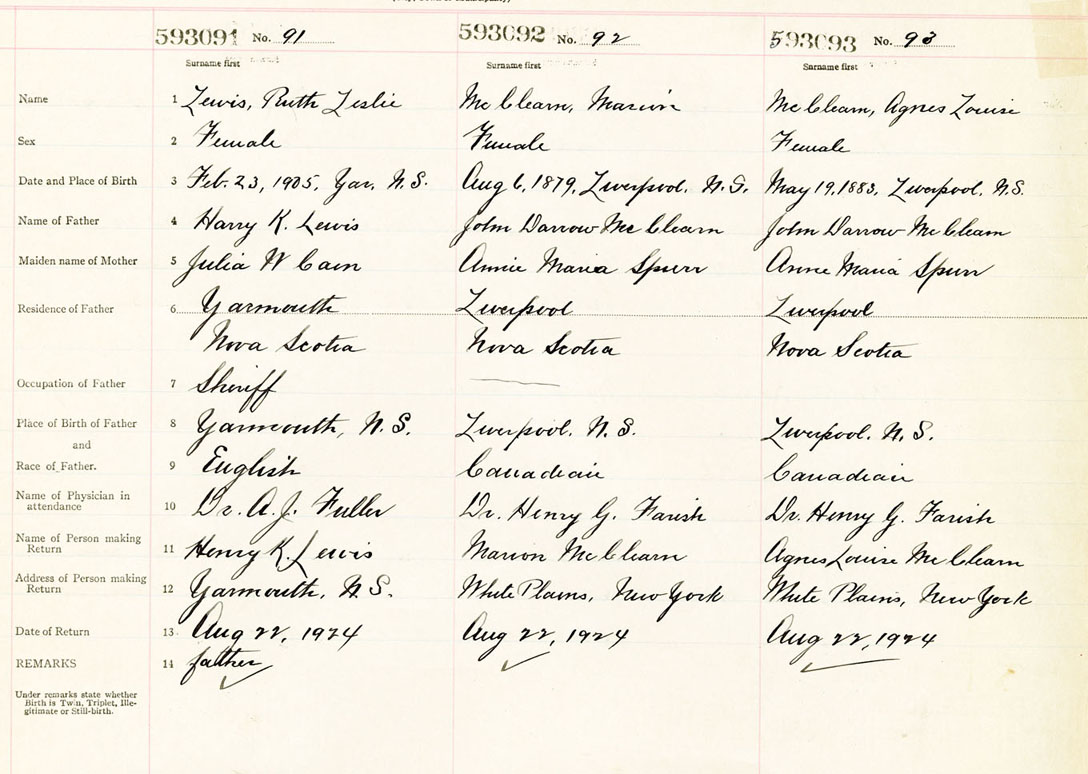 593091 No. 91 593092 No. 92 593093 No. 93
Surname first Surname first Surname first
Name 1 Lewis, Ruth Leslie Mc Clearn, Marion Mc Clearn, Agnes Louise
Sex 2 Female Female Female
Date and Place of Birth 3 Feb. 23, 1905, Yar. N.S. Aug 6, 1879, Liverpool. N.S. May 19, 1883. Liverpool. N.S.
Name of Father 4 Harry K. Lewis John Darrow Mc Clearn John Darrow Mc Clearn
Maiden name of Mother 5 Julia W Cain Annie Maria Spurr Annie Maria Spurr
Residence of Father 6 Yarmouth Liverpool Liverpool
Nova Scotia Nova Scotia Nova Scotia
Occupation of Father 7 Sheriff
Place of Birth of Father 8 Yarmouth, N.S. Liverpool. N.S. Liverpool. N.S.
and
Race of Father. 9 English Canadian Canadian
Name of Physician in
attendance 10 Dr. A. J. Fuller Dr. Henry G. Farish Dr. Henry G. Farish
Name of Person making
Return 11 Henry K. Lewis Marion Mc Clearn Agnes Louise Mc Clearn
Address of Person making
Return 12 Yarmouth, N.S. White Plains, New York White Plains, New York
Date of Return 13 Aug 22, 1924 Aug 22, 1924 Aug 22, 1924
REMARKS 14 father
Under remarks state whether
Birth is Twin, Triplet, Ille-
gitimate or Still-birth.